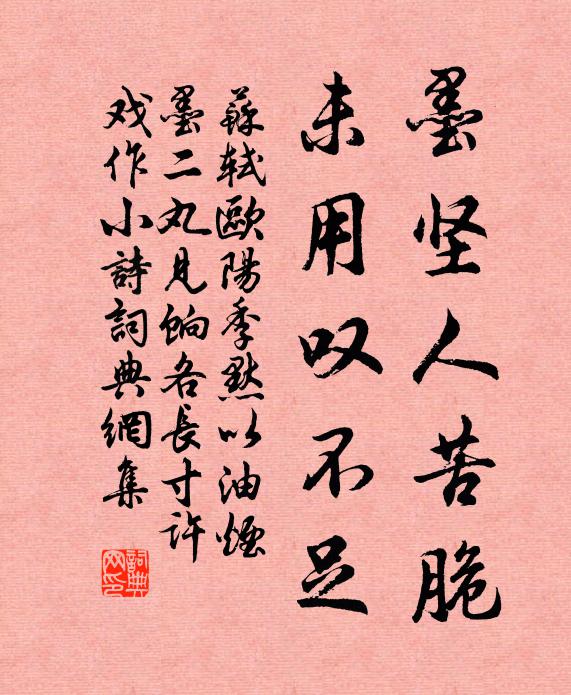 墨坚人苦脆
未用叹不足
蘇轼歐陽季默以油煙
墨二丸見餉各長寸許
戏作小詩詞典網集
詞典网印